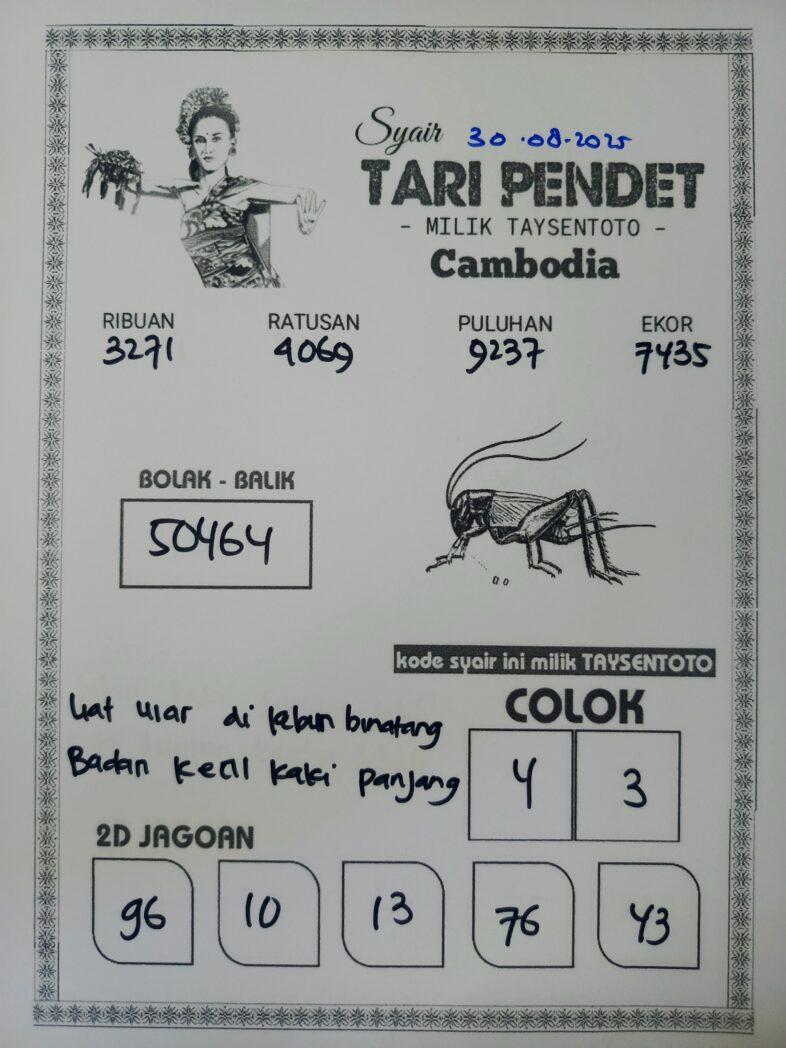 Syair 30.08.2025
TARI PENDET
- MILIK TAYSENTOTO -
Cambodia
RIBUAN RATUSAN PULUHAN EKOR
3271 4069 9237 7435
BOLAK - BALIK
50464
kode syair ini milik TAYSENTOTO
liat ular di kebun binatang
Badan kecil kaki panjang
COLOK
4 3
2D JAGOAN
96 10 13 76 43